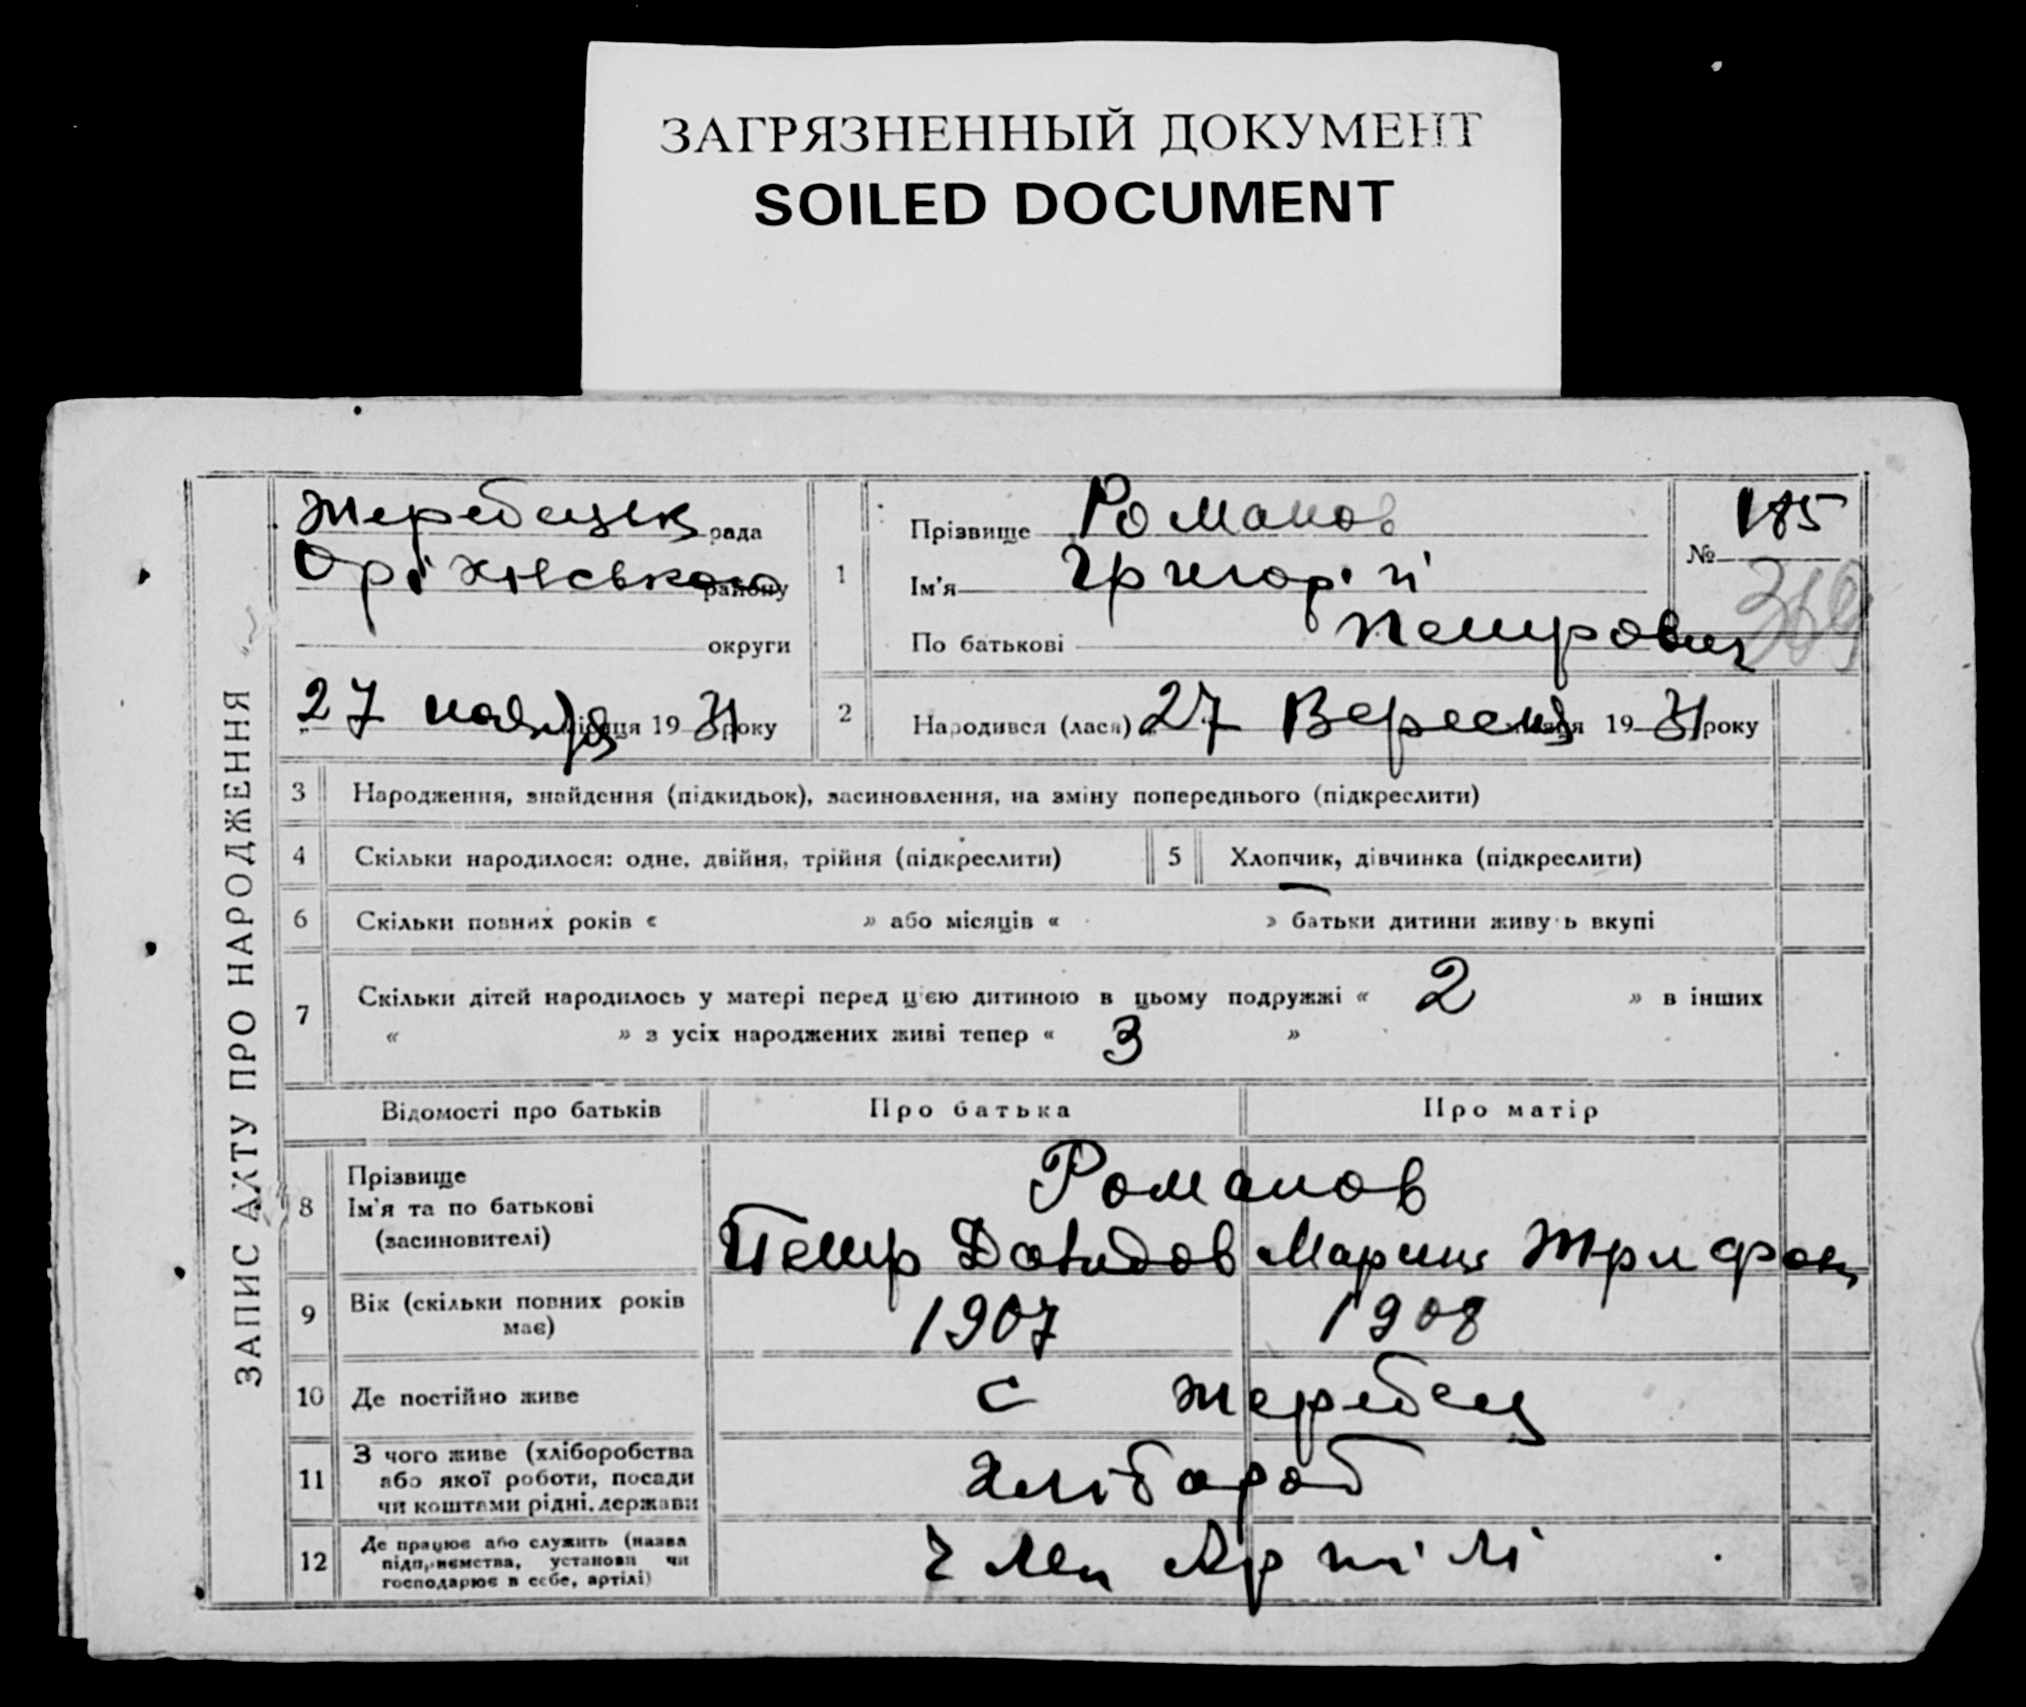 ЗАГРЯЗНЕННЫЙ ДОКУМЕНТ
SOILED DOCUMENT
ЗАПИС АКТУ ПРО НАРОДЖЕННЯ
Жеребецьк рада
Оріхівського району
округи
27 ноября місяця 1931 року
1
Прізвище Романов
Ім'я Григорій
По батькові Петрович
№ 185
2 Народився (лася) 27 Вересня місяця 1931 року
3 Народження, знайдення (підкидьок), засиновлення, на зміну попереднього (підкреслити)
4 Скільки народилося: одне, двійня, трійня (підкреслити) 5 Хлопчик, дівчинка (підкреслити)
6 Скільки повних років « » або місяців « » батьки дитини живуть вкупі
7 Скільки дітей народилось у матері перед цією дитиною в цьому подружжі « 2 » в інших
« » з усіх народжених живі тепер « 3 »
Відомості про батьків Про батька Про матір
8 Прізвище
Ім'я та по батькові
(засиновителі)
Романов
Петр Давидов Мария Трифон
9 Вік (скільки повних років
має)
1907 1908
10 Де постійно живе с Жеребец
11 З чого живе (хліборобства
або якої роботи, посади
чи коштами рідні, держави
Хлібороб
12 Де працює або служить (назва
підприємства, установи чи
господарює в себе, артілі)
Член Артілі